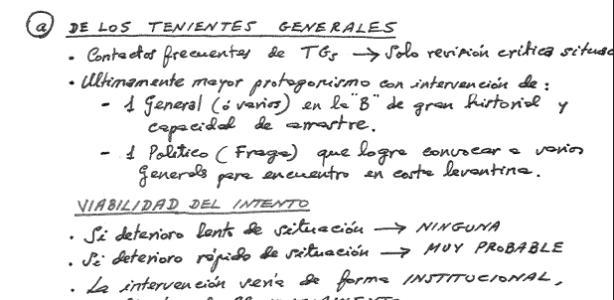 (a) DE LOS TENIENTES GENERALES
• Contactos frecuentes de TGs → Solo revisión crítica situac
• Ultimamente mayor protagonismo con intervención de:
- 1 General (ó varios) en la "B" de gran historial y
capacidad de arrastre.
- 1 Político (Fraga) que logre convocar a varios
Generales para encuentro en costa levantina.
VIABILIDAD DEL INTENTO
• Si deterioro lento de situación → NINGUNA
• Si deterioro rápido de situación → MUY PROBABLE
• La intervención sería de forma INSTITUCIONAL,